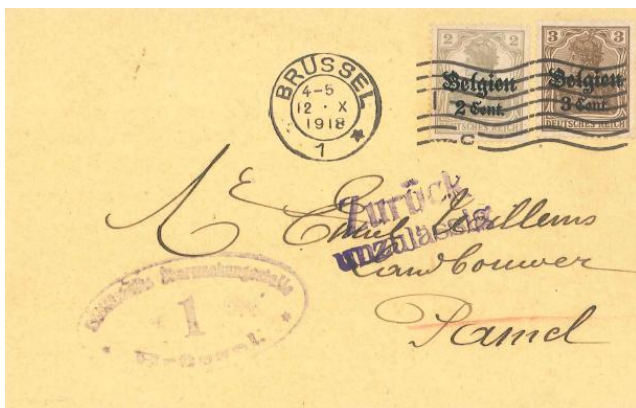 BRUSSEL
4-5
12 · X
1918
1
2 2
Belgien
2 Cent.
DEUTSCHES REICH
3 3
Belgien
3 Cent.
DEUTSCHES REICH
Zurück
unzulässig
Mr Emiel Willems
Landbouwer
Pamel
Überwachungsstelle
1
Brüssel.